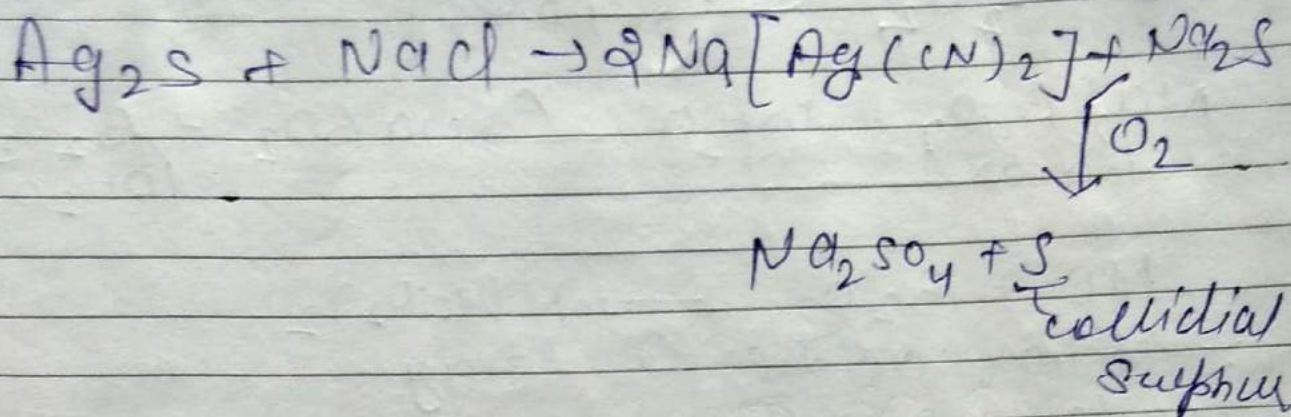 Ag₂S + NaCl → 2Na[Ag(CN)₂] + Na₂S
↓ O₂
Na₂SO₄ + S
collidial
Sulphur